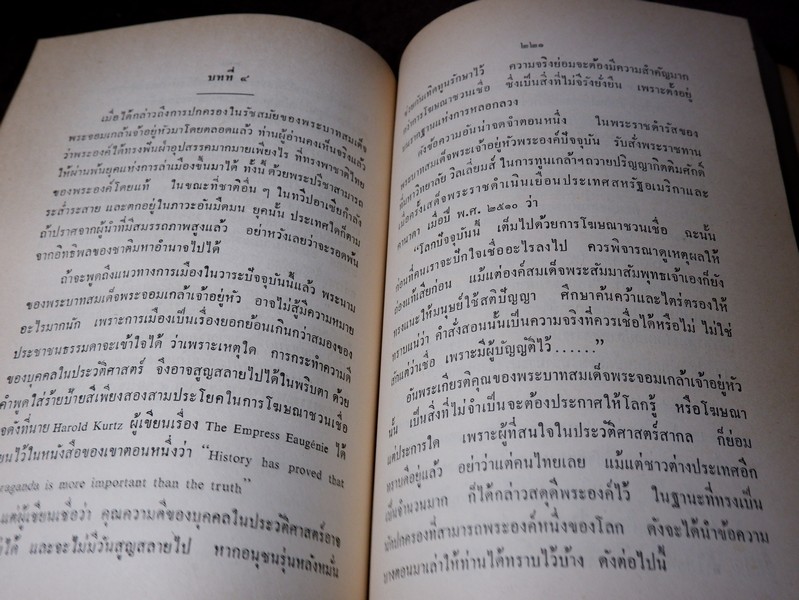 บทที่ ๙
เมื่อได้กล่าวถึงการปกครองในรัชสมัยของพระบาทสมเด็จ
พระจอมเกล้าเจ้าอยู่หัวมาโดยตลอดแล้ว ท่านผู้อ่านคงเห็นจริงแล้ว
ว่าพระองค์ได้ทรงฟันฝ่าอุปสรรคมากมายเพียงไร ที่ทรงพาชาติไทย
ให้ผ่านพ้นยุคแห่งการล่าเมืองขึ้นมาได้ ทั้งนี้ด้วยพระปรีชาสามารถ
ของพระองค์โดยแท้ ในขณะที่ชาติอื่น ๆ ในทวีปอาเซียกำลัง
ระส่ำระสาย และตกอยู่ในภาวะอันมืดมน ยุคนั้น ประเทศใดก็ตาม
ถ้าปราศจากผู้นำที่มีสมรรถภาพสูงแล้ว อย่าหวังเลยว่าจะรอดพ้น
จากอิทธิพลของชาติมหาอำนาจไปได้
ถ้าจะพูดถึงแนวทางการเมืองในวาระปัจจุบันนี้แล้ว พระนาม
ของพระบาทสมเด็จพระจอมเกล้าเจ้าอยู่หัว อาจไม่สู้มีความหมาย
อะไรมากนัก เพราะการเมืองเป็นเรื่องยอกย้อนเกินกว่าสมองของ
ประชาชนธรรมดาจะเข้าใจได้ ว่าเพราะเหตุใด การกระทำความดี
ของบุคคลในประวัติศาสตร์ จึงอาจสูญสลายไปได้ในพริบตา ด้วย
คำพูดใส่ร้ายป้ายสีเพียงสองสามประโยคในการโฆษณาชวนเชื่อ
ดังที่นาย Harold Kurtz ผู้เขียนเรื่อง The Empress Eaugénie ได้
ไว้ในหนังสือของเขาตอนหนึ่งว่า “History has proved that
is more important than the truth”
แต่ผู้เขียนเชื่อว่า คุณความดีของบุคคลในประวัติศาสตร์อาจ
ได้ และจะไม่มีวันสูญสลายไป หากอนุชนรุ่นหลังหมั่น
๒๒๑
กันเทิดทูนรักษาไว้ ความจริงย่อมจะต้องมีความสำคัญมาก
กว่าการโฆษณาชวนเชื่อ ซึ่งเป็นสิ่งที่ไม่จีรังยั่งยืน เพราะตั้งอยู่
บนรากฐานแห่งการหลอกลวง
ดังข้อความอันน่าจดจำตอนหนึ่ง ในพระราชดำรัสของ
พระบาทสมเด็จพระเจ้าอยู่หัวพระองค์ปัจจุบัน รับสั่งพระราชทาน
ที่มหาวิทยาลัย วิลเลี่ยมส์ ในการทูนเกล้าฯถวายปริญญากิตติมศักดิ์
เมื่อครั้งเสด็จพระราชดำเนินเยือนประเทศสหรัฐอเมริกาและ
คานาดา เมื่อปี พ.ศ. ๒๕๑๐ ว่า
“โลกปัจจุบันนี้ เต็มไปด้วยการโฆษณาชวนเชื่อ ฉะนั้น
ก่อนที่คนเราจะปักใจเชื่ออะไรลงไป ควรพิจารณาดูเหตุผลให้
ถ่องแท้เสียก่อน แม้แต่องค์สมเด็จพระสัมมาสัมพุทธเจ้าเองก็ยัง
ทรงแนะให้มนุษย์ใช้สติปัญญา ศึกษาค้นคว้าและไตร่ตรองให้
ทราบแน่ว่า คำสั่งสอนนั้นเป็นความจริงที่ควรเชื่อได้หรือไม่ ไม่ใช่
สักแต่ว่าเชื่อ เพราะมีผู้บัญญัติไว้ ......”
อันพระเกียรติคุณของพระบาทสมเด็จพระจอมเกล้าเจ้าอยู่หัว
นั้น เป็นสิ่งที่ไม่จำเป็นจะต้องประกาศให้โลกรู้ หรือโฆษณา
แต่ประการใด เพราะผู้ที่สนใจในประวัติศาสตร์สากล ก็ย่อม
ทราบดีอยู่แล้ว อย่าว่าแต่คนไทยเลย แม้แต่ชาวต่างประเทศอีก
เป็นจำนวนมาก ก็ได้กล่าวสดุดีพระองค์ไว้ ในฐานะที่ทรงเป็น
นักปกครองที่สามารถพระองค์หนึ่งของโลก ดังจะได้นำข้อความ
บางตอนมาเล่าให้ท่านได้ทราบไว้บ้าง ดังต่อไปนี้